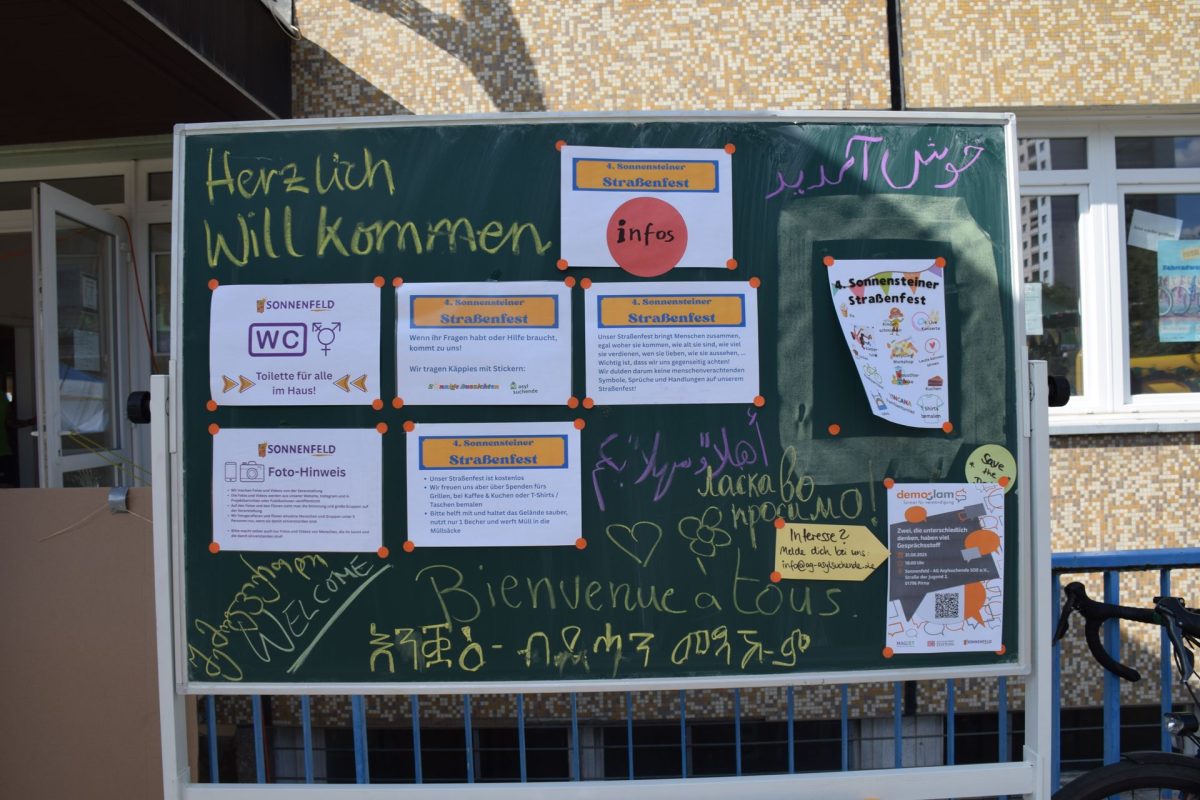 Herzlich
Willkommen
4. Sonnensteiner
Straßenfest
infos
خوش آمدید
SONNENFELD
WC
Toilette für alle
im Haus!
4. Sonnensteiner
Straßenfest
Wenn ihr Fragen habt oder Hilfe braucht,
kommt zu uns!
Wir tragen Käppies mit Stickern:
Sonnige Aussichten
asyl
suchende
4. Sonnensteiner
Straßenfest
Unser Straßenfest bringt Menschen zusammen,
egal woher sie kommen, wie alt sie sind, wie viel
sie verdienen, wen sie lieben, wie sie aussehen, ...
Wichtig ist, dass wir uns gegenseitig achten!
Wir dulden darum keine menschenverachtenden
Symbole, Sprüche und Handlungen auf unserem
Straßenfest!
4. Sonnensteiner
Straßenfest
4 Live
Konzerte
Workshop
Kuchen
T Shirts
bemalen
SONNENFELD
Foto-Hinweis
Wir machen Fotos und Videos von der Veranstaltung
4. Sonnensteiner
Straßenfest
Unser Straßenfest ist kostenlos
Wir freuen uns aber über Spenden fürs
Grillen, bei Kaffee & Kuchen oder T-Shirts /
Taschen bemalen
Bitte helft mit und haltet das Gelände sauber,
nutzt nur 1 Becher und werft Müll in die
Müllsäcke
أهلا وسهلا بكم
Ласкаво
просимо!
Save
the
Interesse?
Melde dich bei uns:
info@ag-asylsuchende.de
demoslam
Zwei, die unterschiedlich
denken, haben viel
Gesprächsstoff
31.08.2025
18:00 Uhr
Sonnenfeld - AG Asylsuchende SOE e.V.,
Straße der Jugend 2,
01796 Pirna
SONNENFELD
WELCOME
Bienvenue à tous